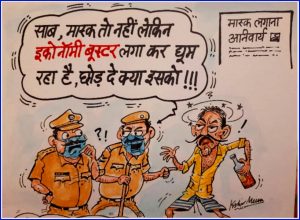 साब, मास्क तो नहीं लेकिन
इकोनॉमी बूस्टर लगा कर घूम
रहा है, छोड़ दे क्या इसको !!!
मास्क लगाना
आनिवार्य
?!